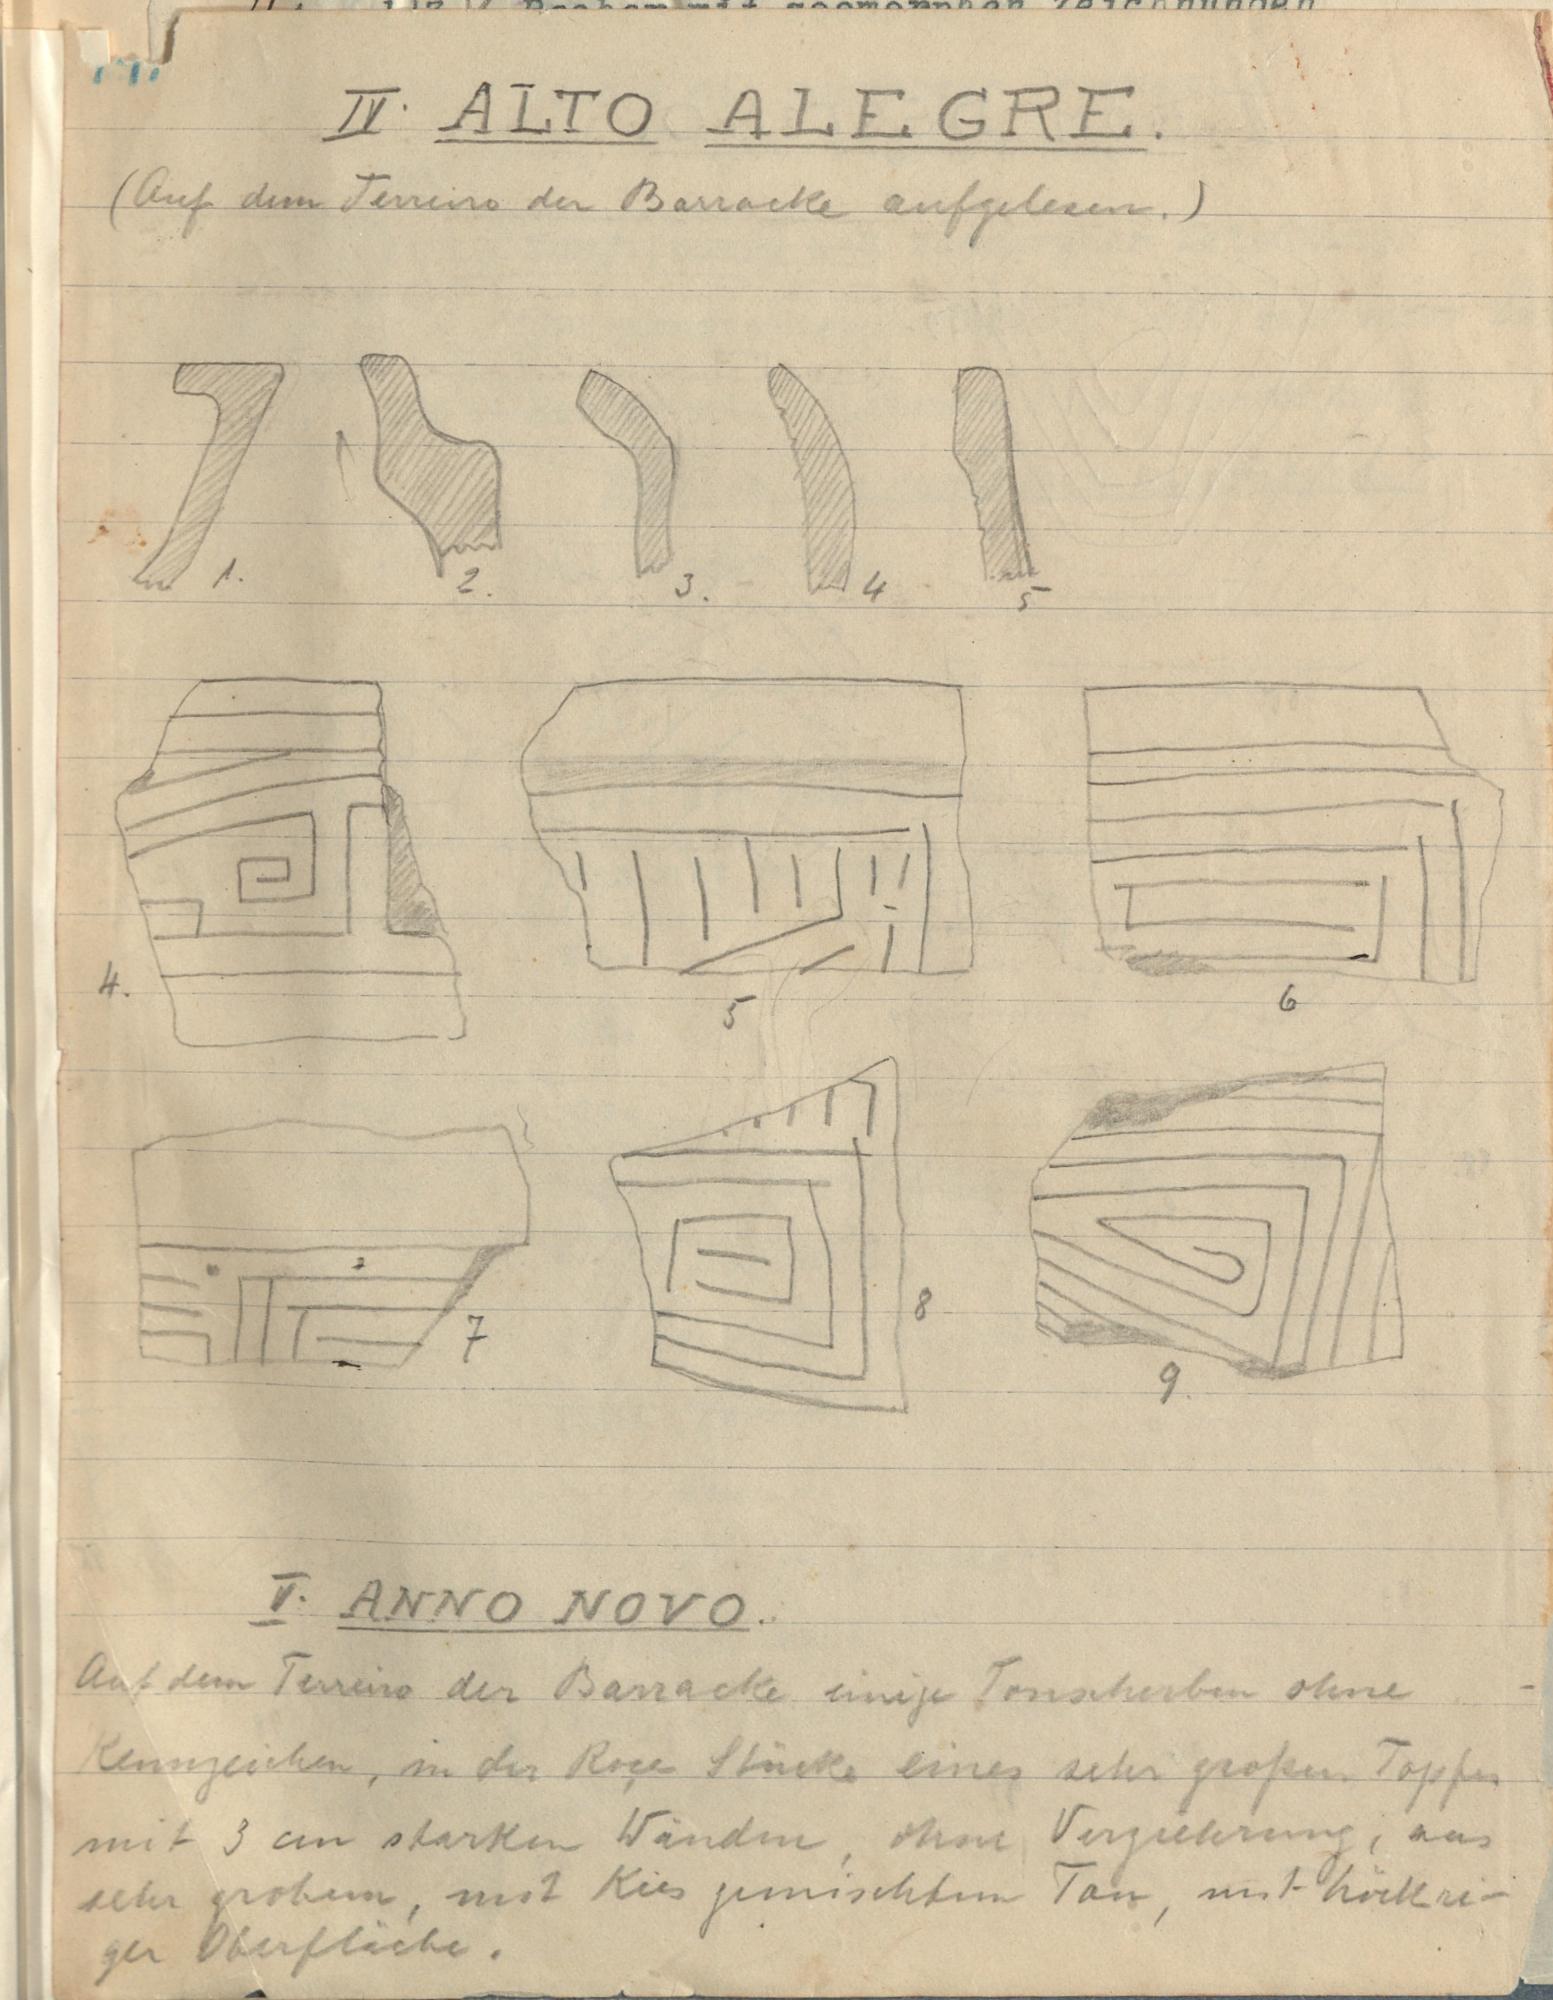 IV. ALTO ALEGRE.
(Auf dem Terreiro der Barracke aufgelesen.)
1. 2. 3. 4 5
4. 5 6
7 8 9.
V. ANNO NOVO.
Auf dem Terreiro der Barracke einige Tonscherben ohne
Kennzeichen, in der Roça Stücke eines sehr großen Topfes
mit 3 cm starken Wänden, ohne Verzierung, aus
sehr grobem, mit Kies gemischtem Ton, mit höckri-
ger Oberfläche.